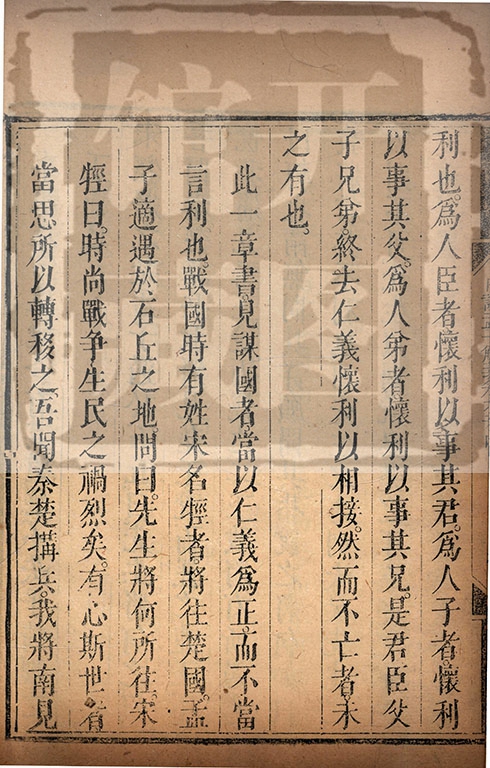 利也。爲人臣者懷利以事其君。爲人子者。懷利
以事其父。爲人弟者懷利以事其兄。是君臣父
子兄弟。終去仁義懷利以相接。然而不亡者。未
之有也。
此一章書。見謀國者當以仁義爲正。而不當
言利也。戰國時有姓宋名牼者。將往楚國。孟
子適遇於石丘之地。問曰。先生將何所往。宋
牼曰。時尚戰爭。生民之禍烈矣。有心斯世者
當思所以轉移之。吾聞秦楚搆兵。我將南見